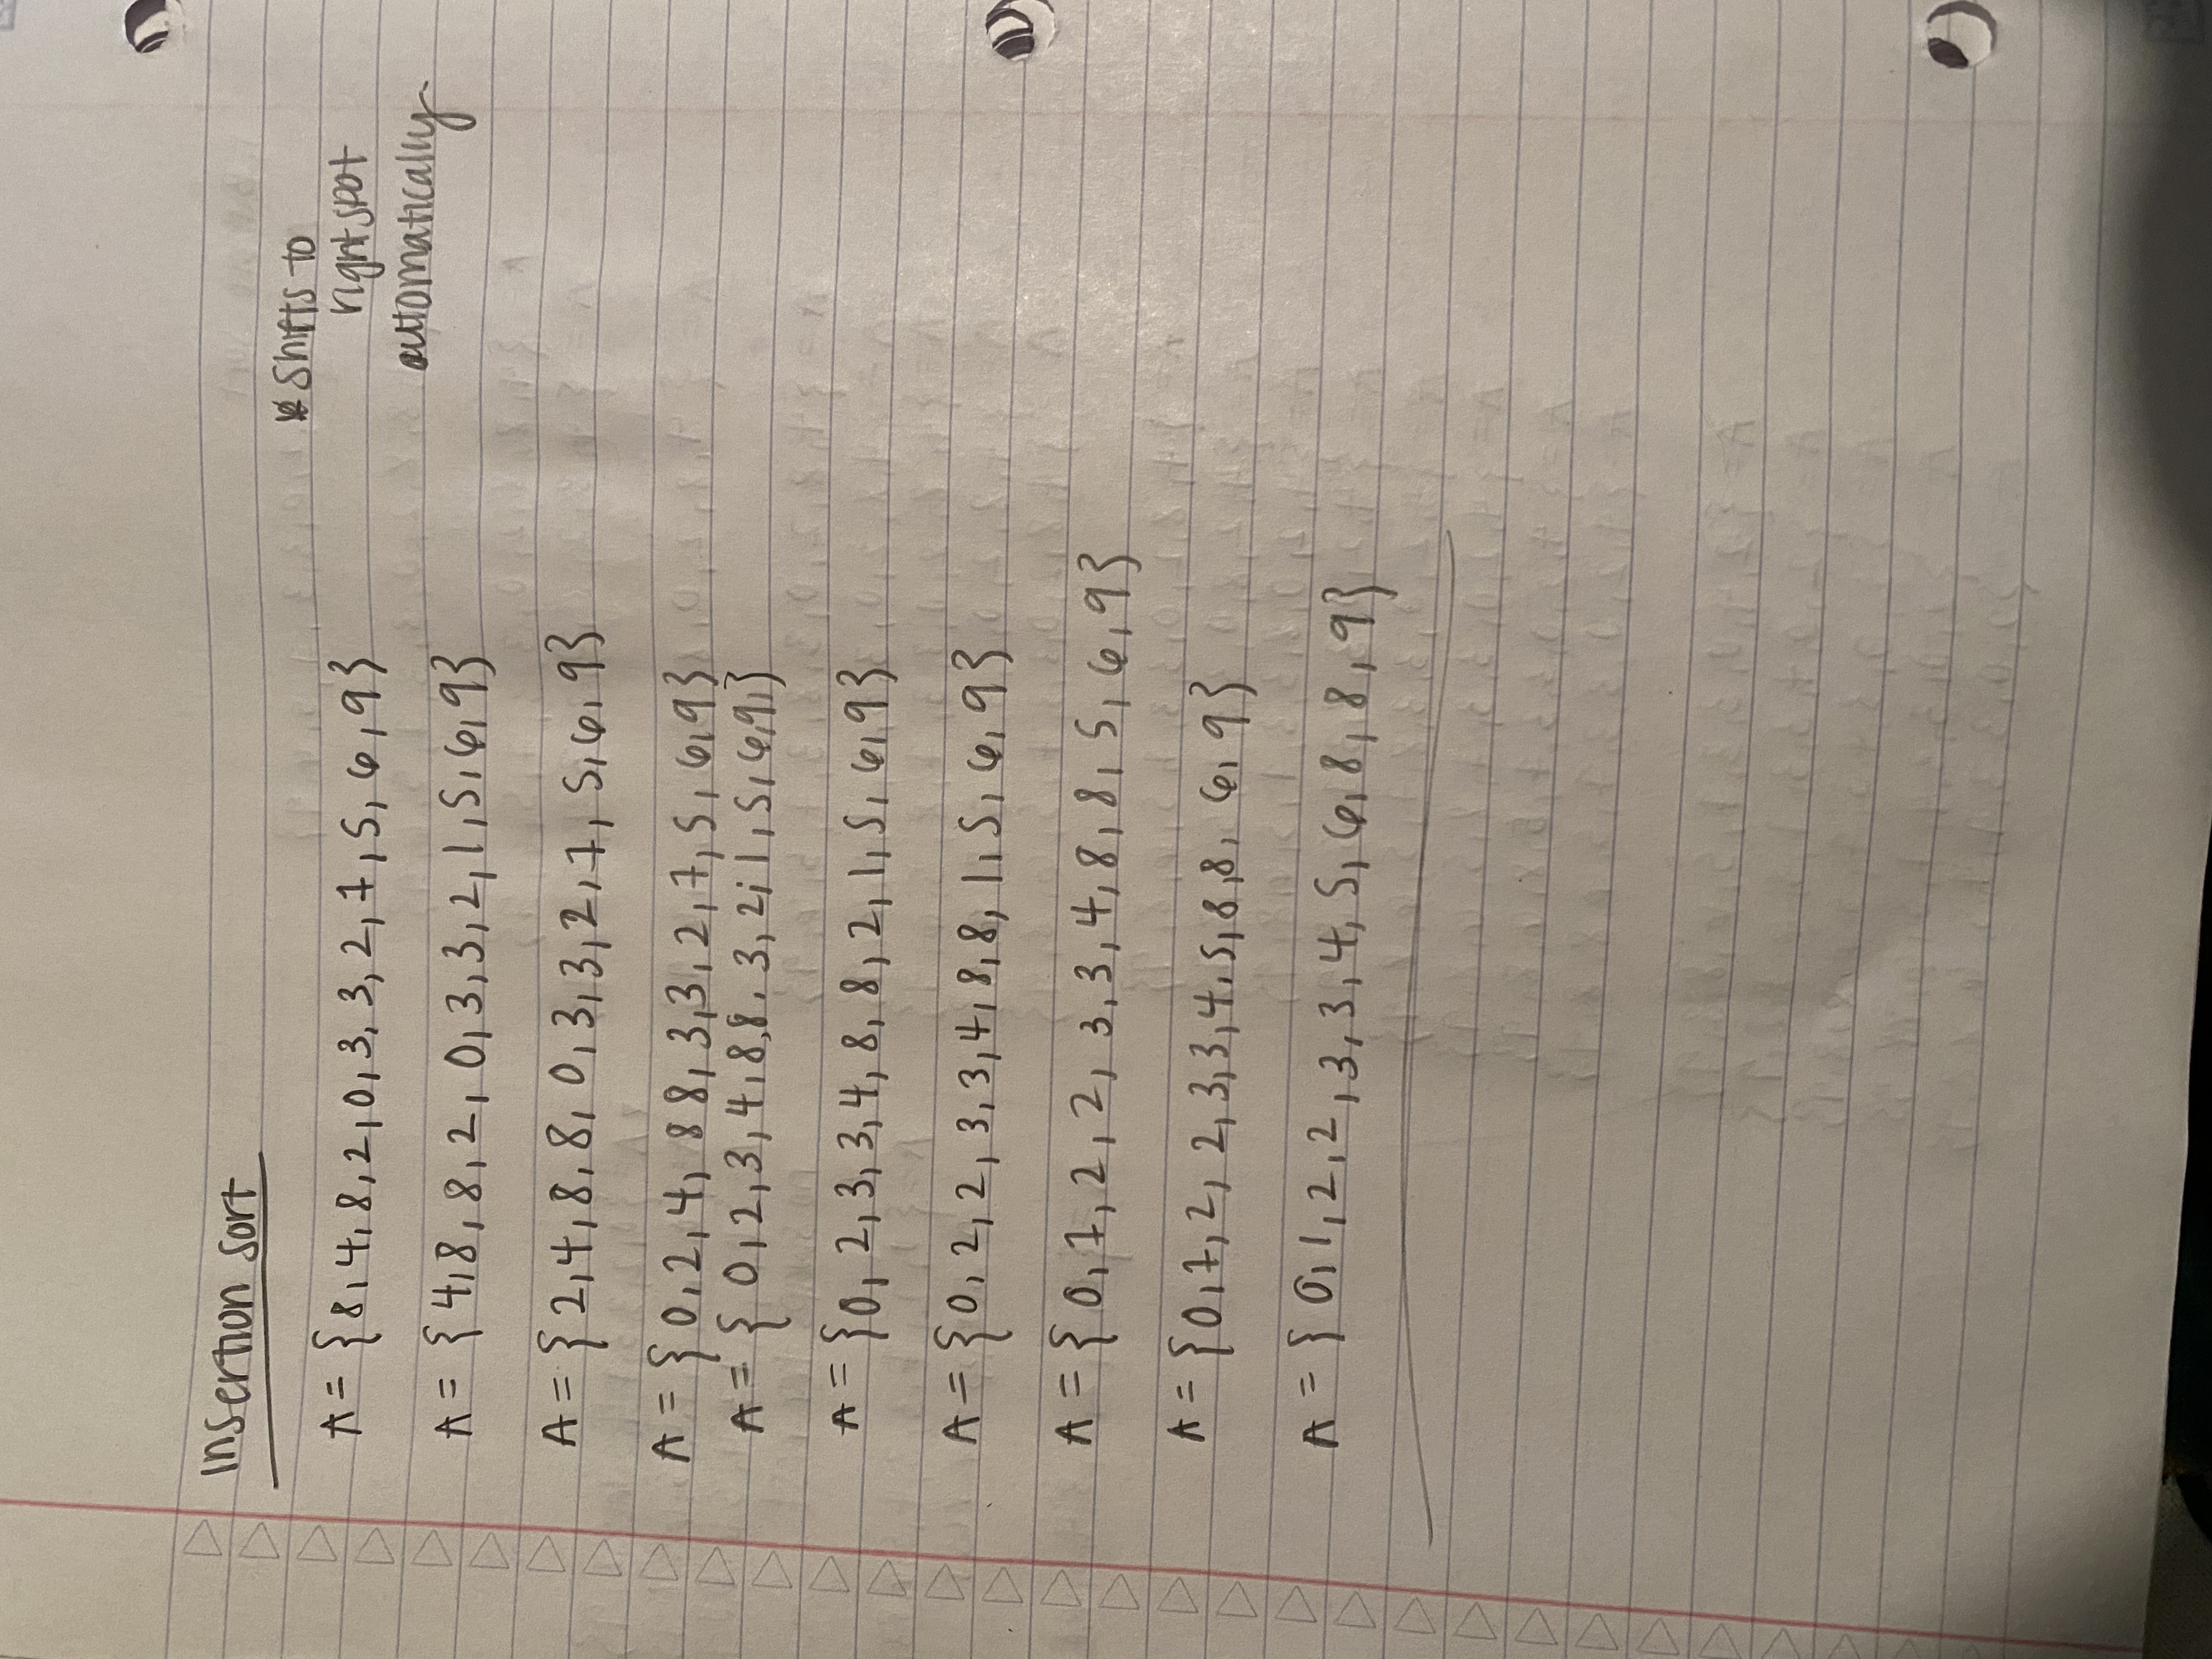 Insertion sort
A = {8,4,8,2,0,3,3,2,1,5,6,9}
* Shifts to
right spot
automatically
A = {4,8,8,2,0,3,3,2,1,5,6,9}
A = {2,4,8,8,0,3,3,2,1,5,6,9}
A = {0,2,4,8 8,3,3,2,1,5,6,9}
A = {0,2,3,4,8,8,3,2,1,5,6,9,}
A = {0,2,3,3,4,8,8,2,1,5,6,9}
A = {0,2,2,3,3,4,8,8,1,5,6,9}
A = {0,1,2,2,3,3,4,8,8,5,6,9}
A = {0,1,2,2,3,3,4,5,8,8,6,9}
A = {0,1,2,2,3,3,4,5,6,8,8,9}